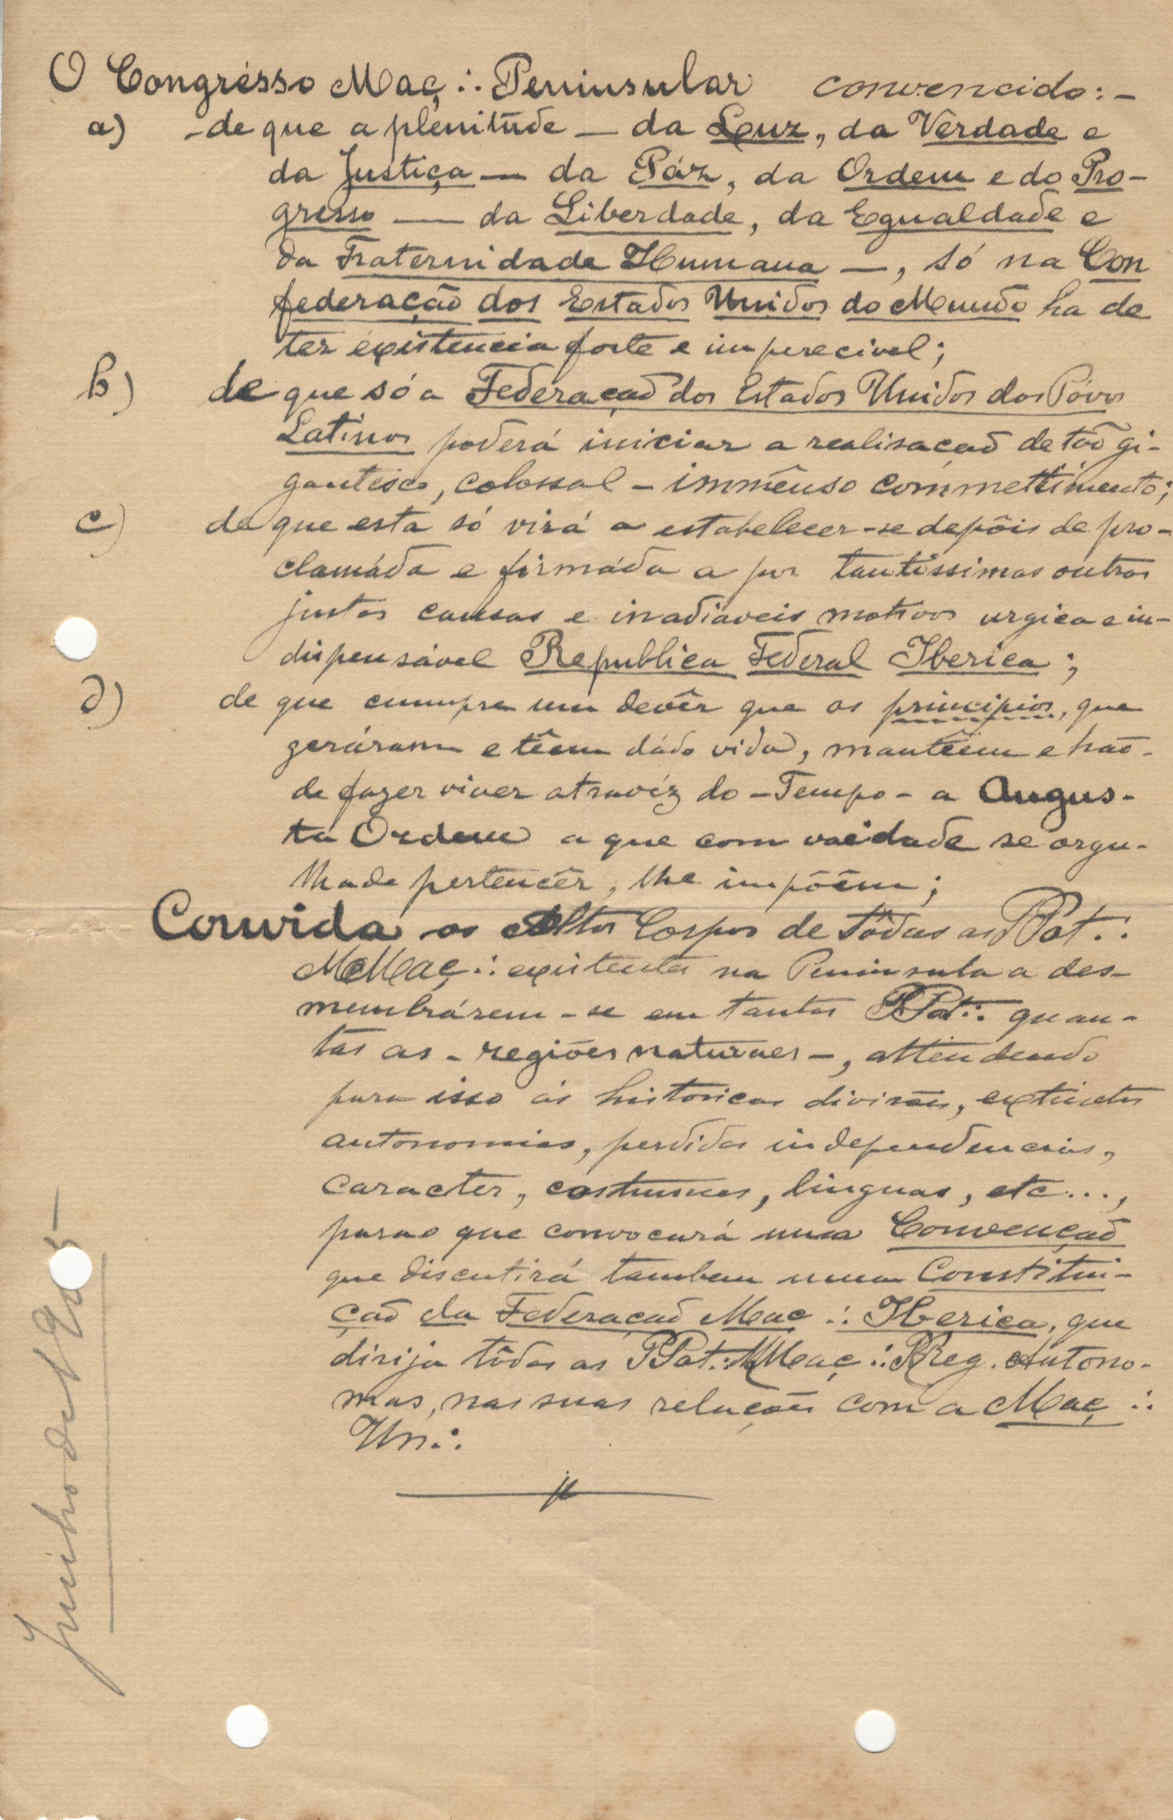 O Congrésso Maç∴ Peninsular convencido:-
a) - de que a plenitude — da Luz, da Verdade e
da Justiça — da Páz, da Ordem e do Pro-
gresso — da Liberdade, da Egualdade e
da Fraternidade Humana —, só na Con
federação dos Estados Unidos do Mundo ha de
ter existencia forte e imperecivel;
b) de que só a Federação dos Estados Unidos dos Póvos
Latinos poderá iniciar a realisação de tão gi-
gantisco, colossal - immênso commettimento;
c) de que esta só virá a estabelecer-se depôis de pro-
clamáda e firmáda a por tantissimas outras
justas causas e inadiaveis motivos urgica e in-
dispensável Republica Federal Iberica;
d) de que cumpre um devêr que os principios, que
geráram e têem dádo vida, mantêem e hão-
de fazer viver atravéz do - Tempo - a Augus-
ta Ordem a que com vaidade se orgu-
lha de pertencêr, lhe impõem;
Convida os Altos Corpos de tôdas as PPot∴
MMaç∴ existentes na Peninsula a des-
membrárem-se em tantas PPot∴ quan-
tas as - regiões naturaes -, attendendo
para isso ás historicas divisões, extinctas
autonomias, perdidas independencias,
caracter, costumes, linguas, etc...,
para o que convocará uma Convenção
que discutirá tambem uma Constitui-
ção da Federação Maç∴ Iberica, que
dirija tôdas as PPot∴ MMaç∴ RReg. Autono-
mas, nas suas relações com a Maç∴
Un∴
Junho de 1905-